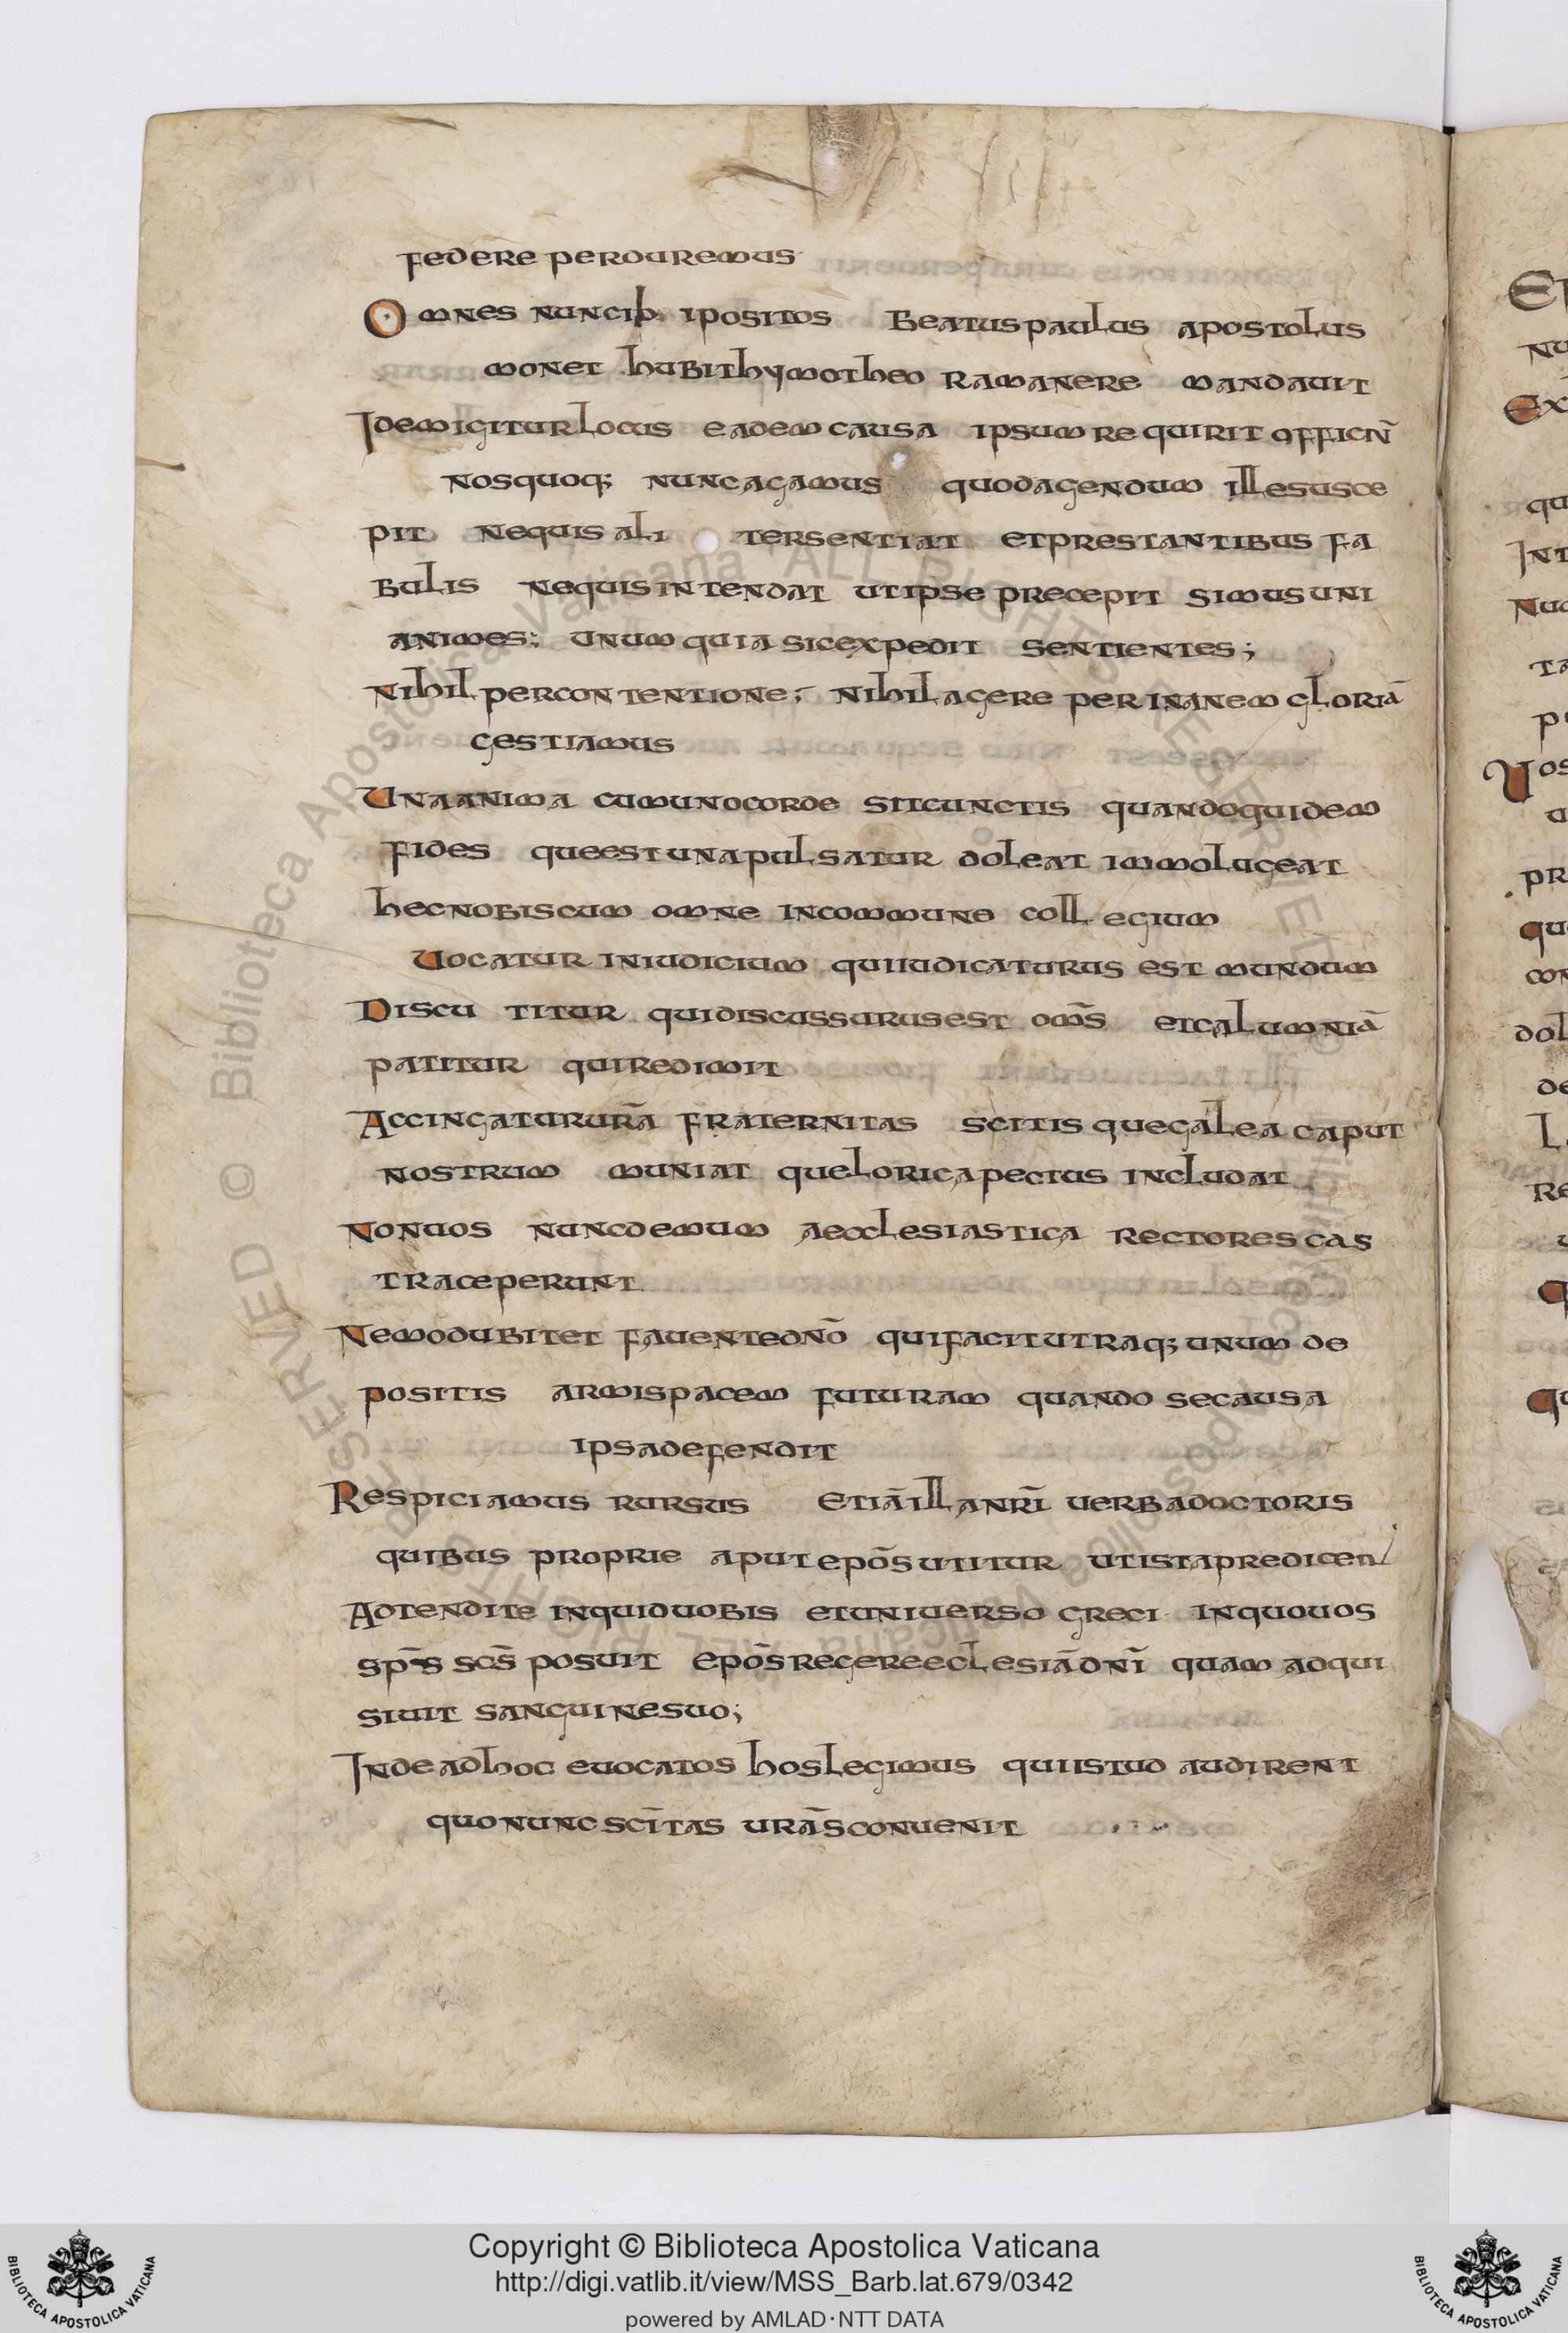 federe perduremus
Omnes nuncib: ipositos Beatus paulus apostolus
monet hubi thymotheo Ramanere mandauit
Idem igitur locus eadem causa ipsum requirit officiū
nos quoq; nunc agamus quod agendum ille susce
pit Nequis ali tersentiat et prestantibus fa
bulis Nequis intendat ut ipse precepit simus uni
animes: unum quia sic expedit sentientes;
Nihil per contentione; Nihil agere per inanem gloriā
gestiamus
Una animā cum uno corde sit cunctis quandoquidem
fides que est una pulsatur doleat immo lugeat
hec nobiscum omne incommune collegium
Uocatur in iudicium qui iudicaturus est mundum
Discutitur qui discussurus est om̄s et calumniā
patitur qui redimit
Accingatur ur̄a fraternitas scitis que galea caput
nostrum muniat que lorica pectus includat
Non uos nunc demum aecclesiastica rectores cas
tra ceperunt
Nemo dubitet fauente dn̄o qui facit utraq; unum de
positis armis pacem futuram quando se causa
ipsa defendit
Respiciamus rursus etiā illa nr̄i uerba doctoris
quibus proprie aput epōs utitur ut ista predicen
Adtendite inquid uobis et uniuerso greci in quo uos
sp̄s sc̄s posuit epōs regere eclesiā dn̄i quam adqui
siuit sanguine suo;
Inde ad hoc euocatos hos legimus qui istud audirent
quo nunc sc̄itas ur̄ās conuenit
Copyright © Biblioteca Apostolica Vaticana
http://digi.vatlib.it/view/MSS_Barb.lat.679/0342
powered by AMLAD·NTT DATA
BIBLIOTECA APOSTOLICA VATICANA
BIBLIOTECA APOSTOLICA VATICANA